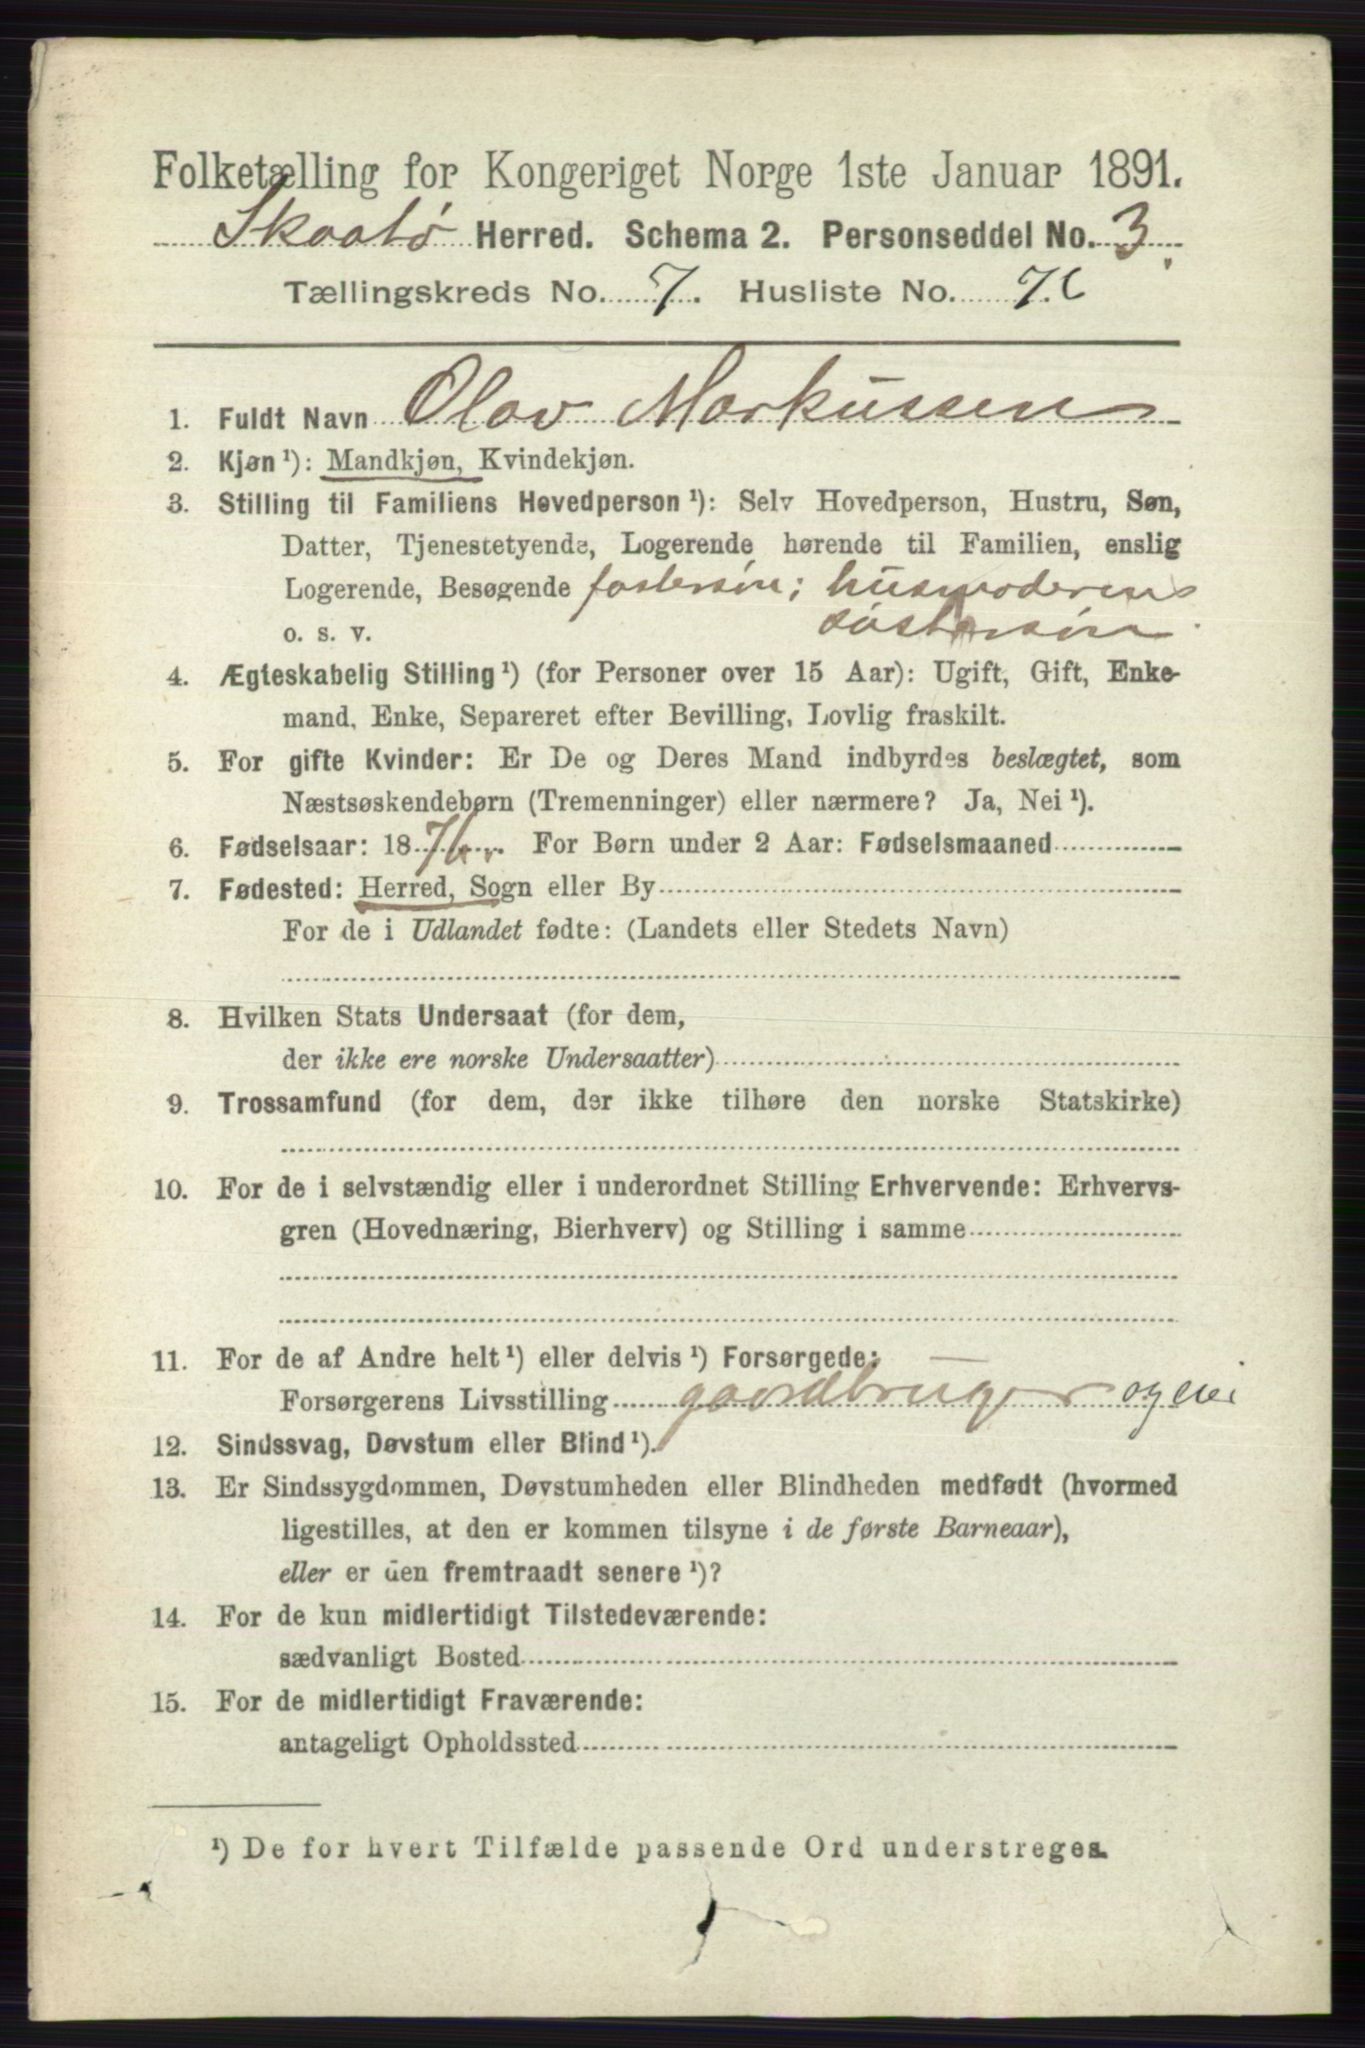 Folketælling for Kongeriget Norge 1ste Januar 1891.
Skaatø Herred. Schema 2. Personseddel No. 3
Tællingskreds No. 7. Husliste No.
1. Fuldt Navn Olav Markussen
2. Kjøn¹): Mandkjøn, Kvindekjøn.
3. Stilling til Familiens Hovedperson¹): Selv Hovedperson, Hustru, Søn,
Datter, Tjenestetyende, Logerende hørende til Familien, enslig
Logerende, Besøgende fostersøn; husmoderens
o. s. v. søstersøn
4. Ægteskabelig Stilling¹) (for Personer over 15 Aar): Ugift, Gift, Enke-
mand, Enke, Separeret efter Bevilling, Lovlig fraskilt.
5. For gifte Kvinder: Er De og Deres Mand indbyrdes beslægtet, som
Næstsøskendebørn (Tremenninger) eller nærmere? Ja, Nei¹).
6. Fødselsaar: 1876. For Børn under 2 Aar: Fødselsmaaned
7. Fødested: Herred, Sogn eller By
For de i Udlandet fødte: (Landets eller Stedets Navn)
8. Hvilken Stats Undersaat (for dem,
der ikke ere norske Undersaatter)
9. Trossamfund (for dem, der ikke tilhøre den norske Statskirke)
10. For de i selvstændig eller i underordnet Stilling Erhvervende: Erhvervs-
gren (Hovednæring, Bierhverv) og Stilling i samme
11. For de af Andre helt¹) eller delvis¹) Forsørgede:
Forsørgerens Livsstilling gaardbruger og eier
12. Sindssvag, Døvstum eller Blind¹).
13. Er Sindssygdommen, Døvstumheden eller Blindheden medfødt (hvormed
ligestilles, at den er kommen tilsyne i de første Barneaar),
eller er den fremtraadt senere¹)?
14. For de kun midlertidigt Tilstedeværende:
sædvanligt Bosted
15. For de midlertidigt Fraværende:
antageligt Opholdssted
¹) De for hvert Tilfælde passende Ord understreges.